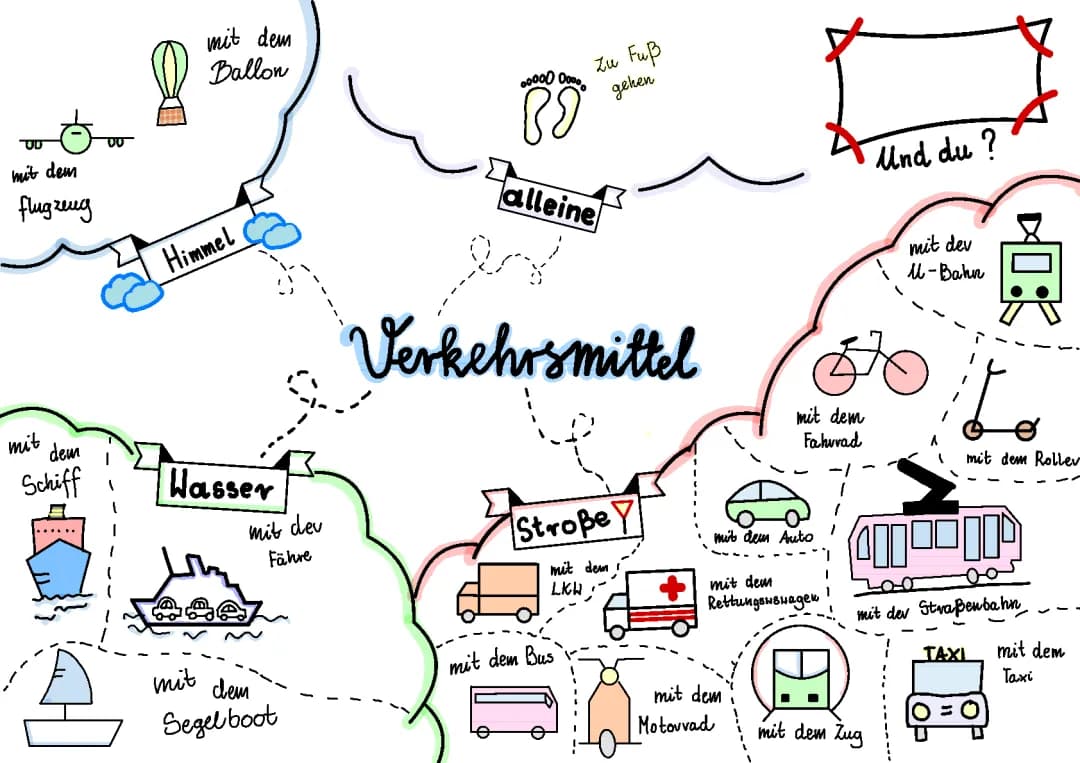 mit dem
Ballon
mit dem
flugzeug
Himmel
zu Fuß
gehen
alleine
Und du?
Verkehrsmittel
Wasser
mit dem
Schiff
mit der
Fähre
mit dem
Segelboot
Straße
mit der
U-Bahn
mit dem
Fahrrad
mit dem Roller
mit dem Auto
mit dem
LKW
mit dem
Rettungswagen
mit der Straßenbahn
mit dem Bus
mit dem
Motorrad
mit dem Zug
TAXI
mit dem
Taxi